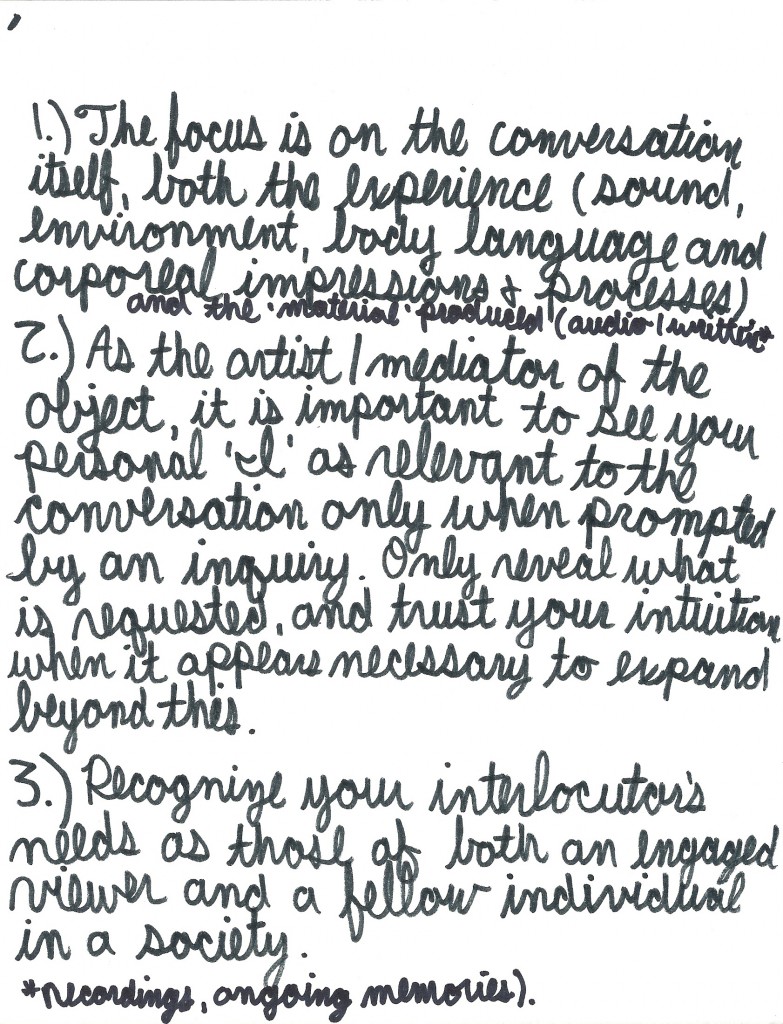 1.) The focus is on the conversation
itself, both the experience (sound,
environment, body language and
corporeal impressions & processes)
and the 'material' produced (audio/written*
2.) As the artist/mediator of the
object, it is important to see your
personal 'I' as relevant to the
conversation only when prompted
by an inquiry. Only reveal what
is requested, and trust your intuition
when it appears necessary to expand
beyond this.
3.) Recognize your interlocutor's
needs as those of both an engaged
viewer and a fellow individual
in a society.
*recordings, ongoing memories).